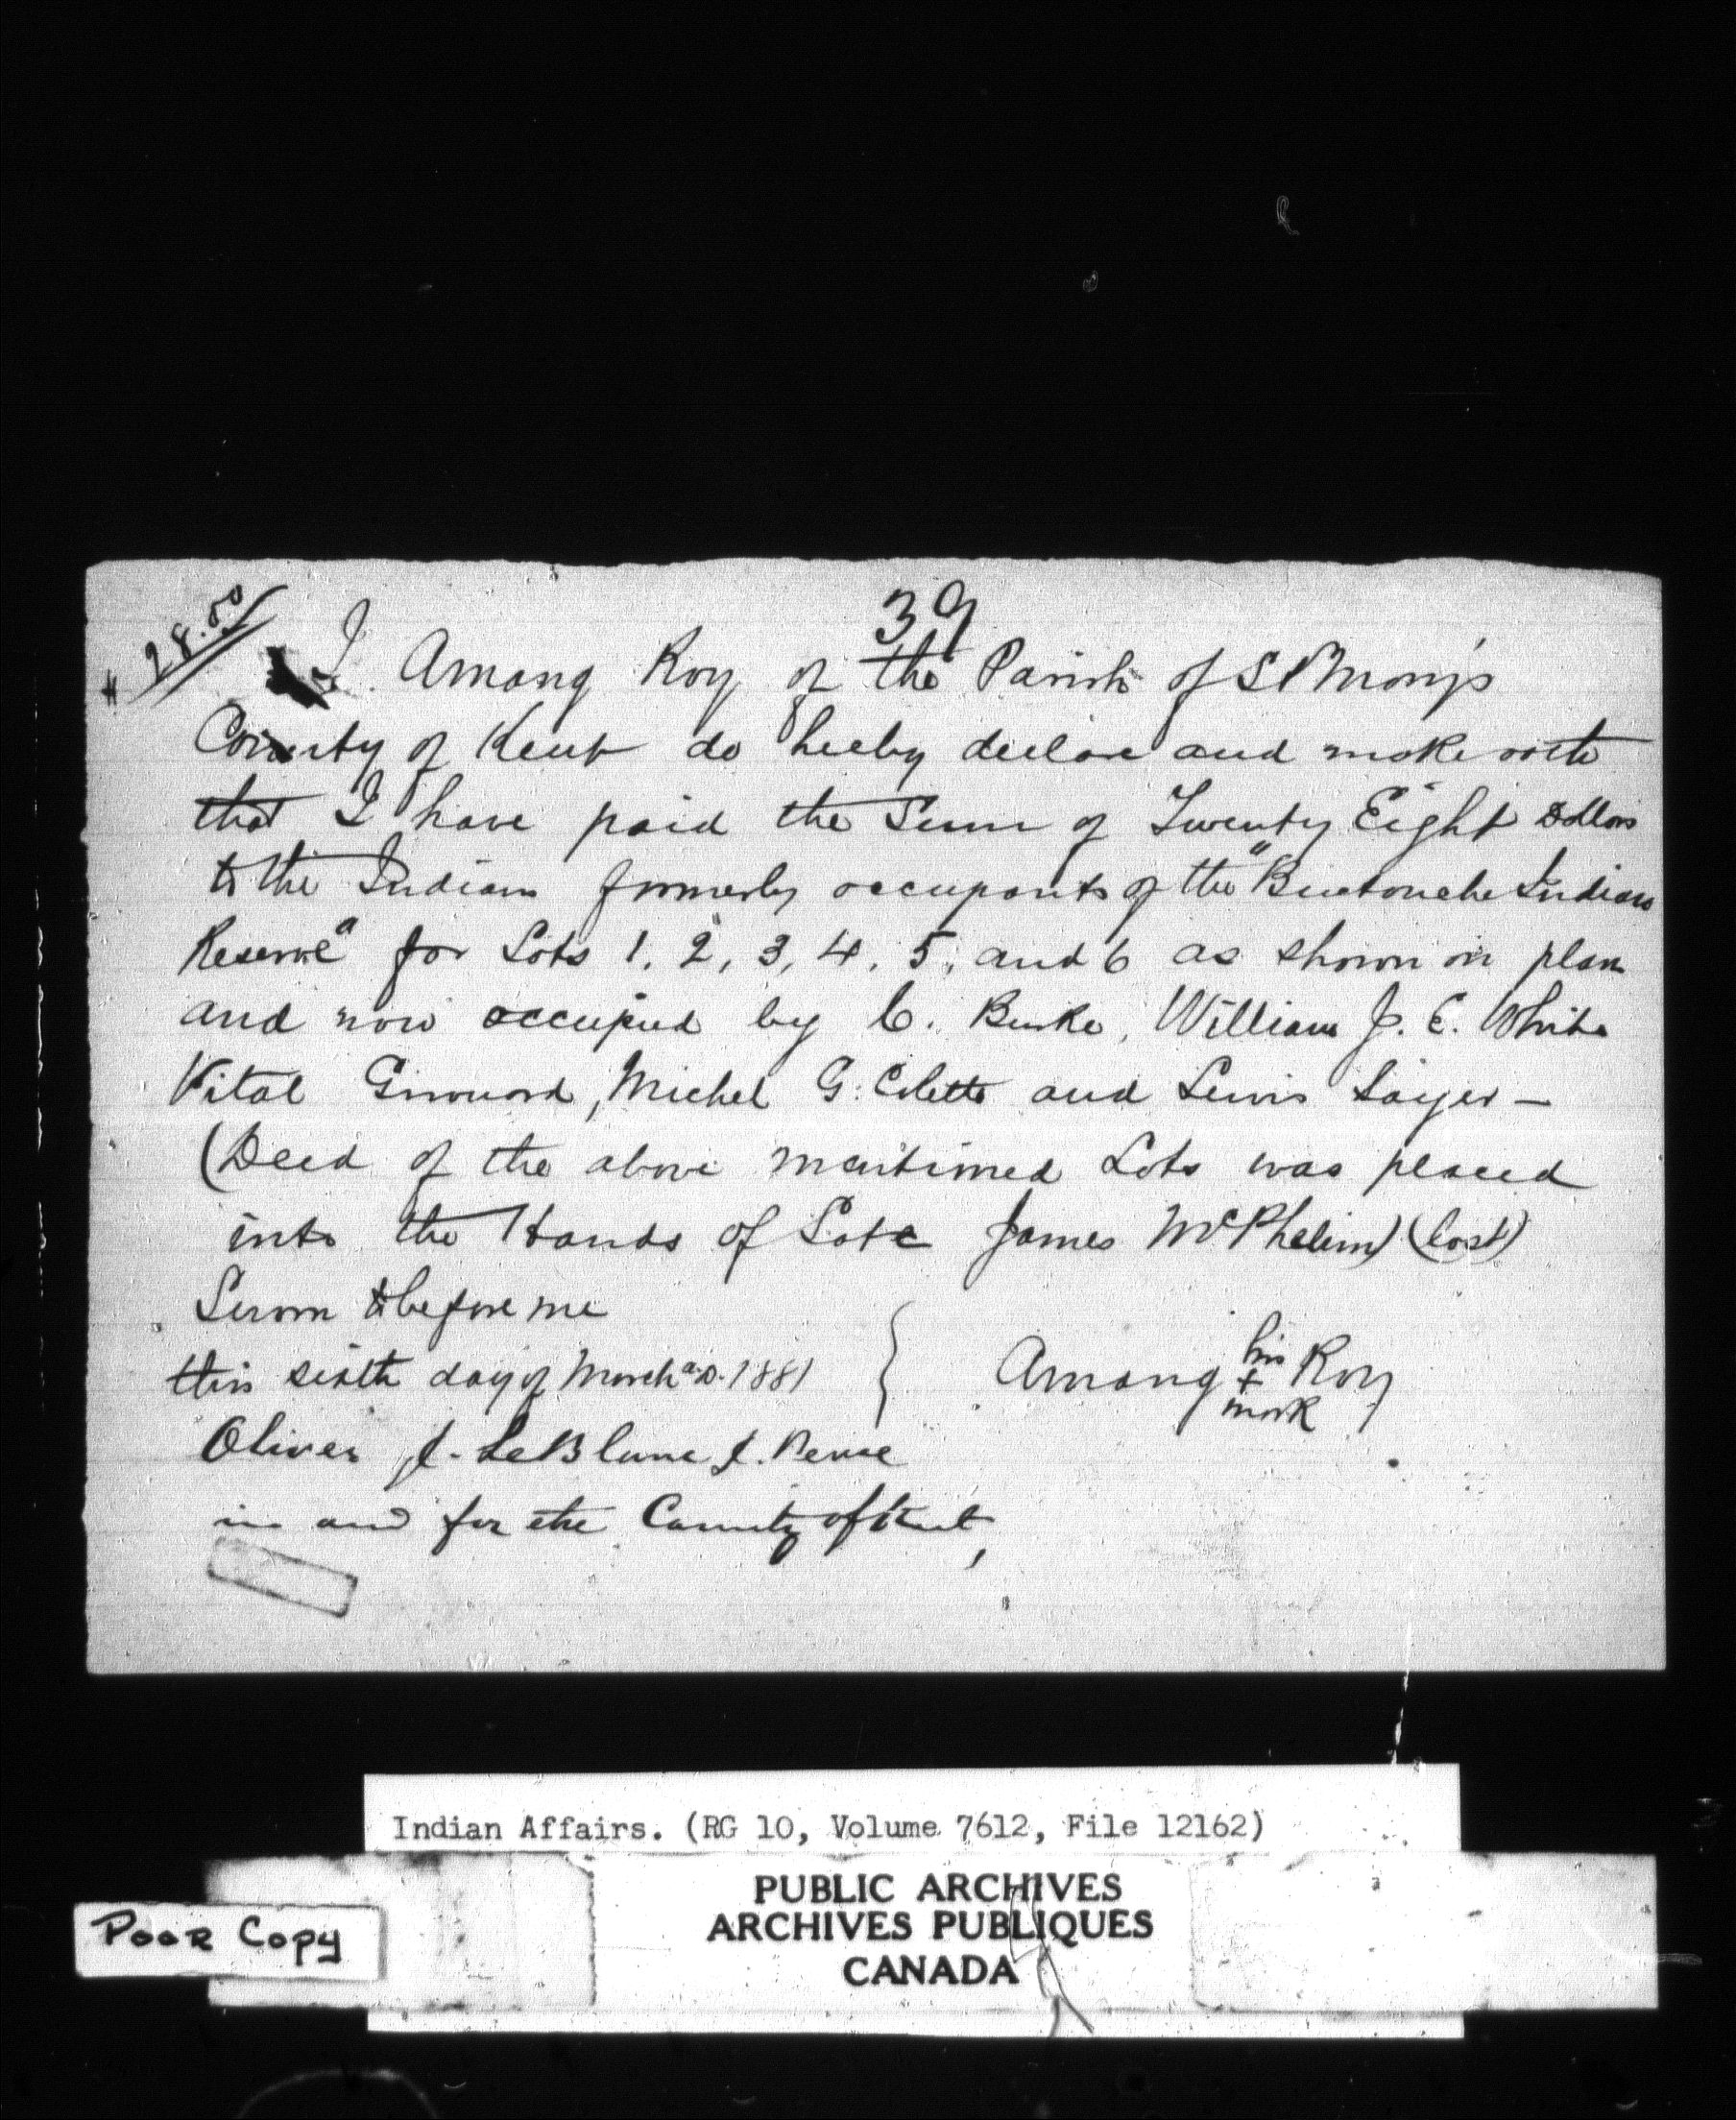 39
$28.00
I Amang Roy of the Parish of St Mary's
County of Kent do hereby declare and make oath
that I have paid the Sum of Twenty Eight Dollars
to the Indians formerly occupants of the "Buctouche Indian
Reserve" for Lots 1, 2, 3, 4, 5, and 6 as shown on plan
and now occupied by C. Burke, William J. E. White
Vital Girouard, Michel G. Colette and Lewis Sayer —
(Deed of the above mentioned Lots was placed
into the Hands of Late James McPhelim) (lost)
Sworn to before me
this sixth day of March A.D. 1881
Amang his + mark Roy
Oliver J. LeBlanc J. Peace
in and for the County of Kent,
Indian Affairs. (RG 10, Volume 7612, File 12162)
PUBLIC ARCHIVES
ARCHIVES PUBLIQUES
CANADA
Poor Copy